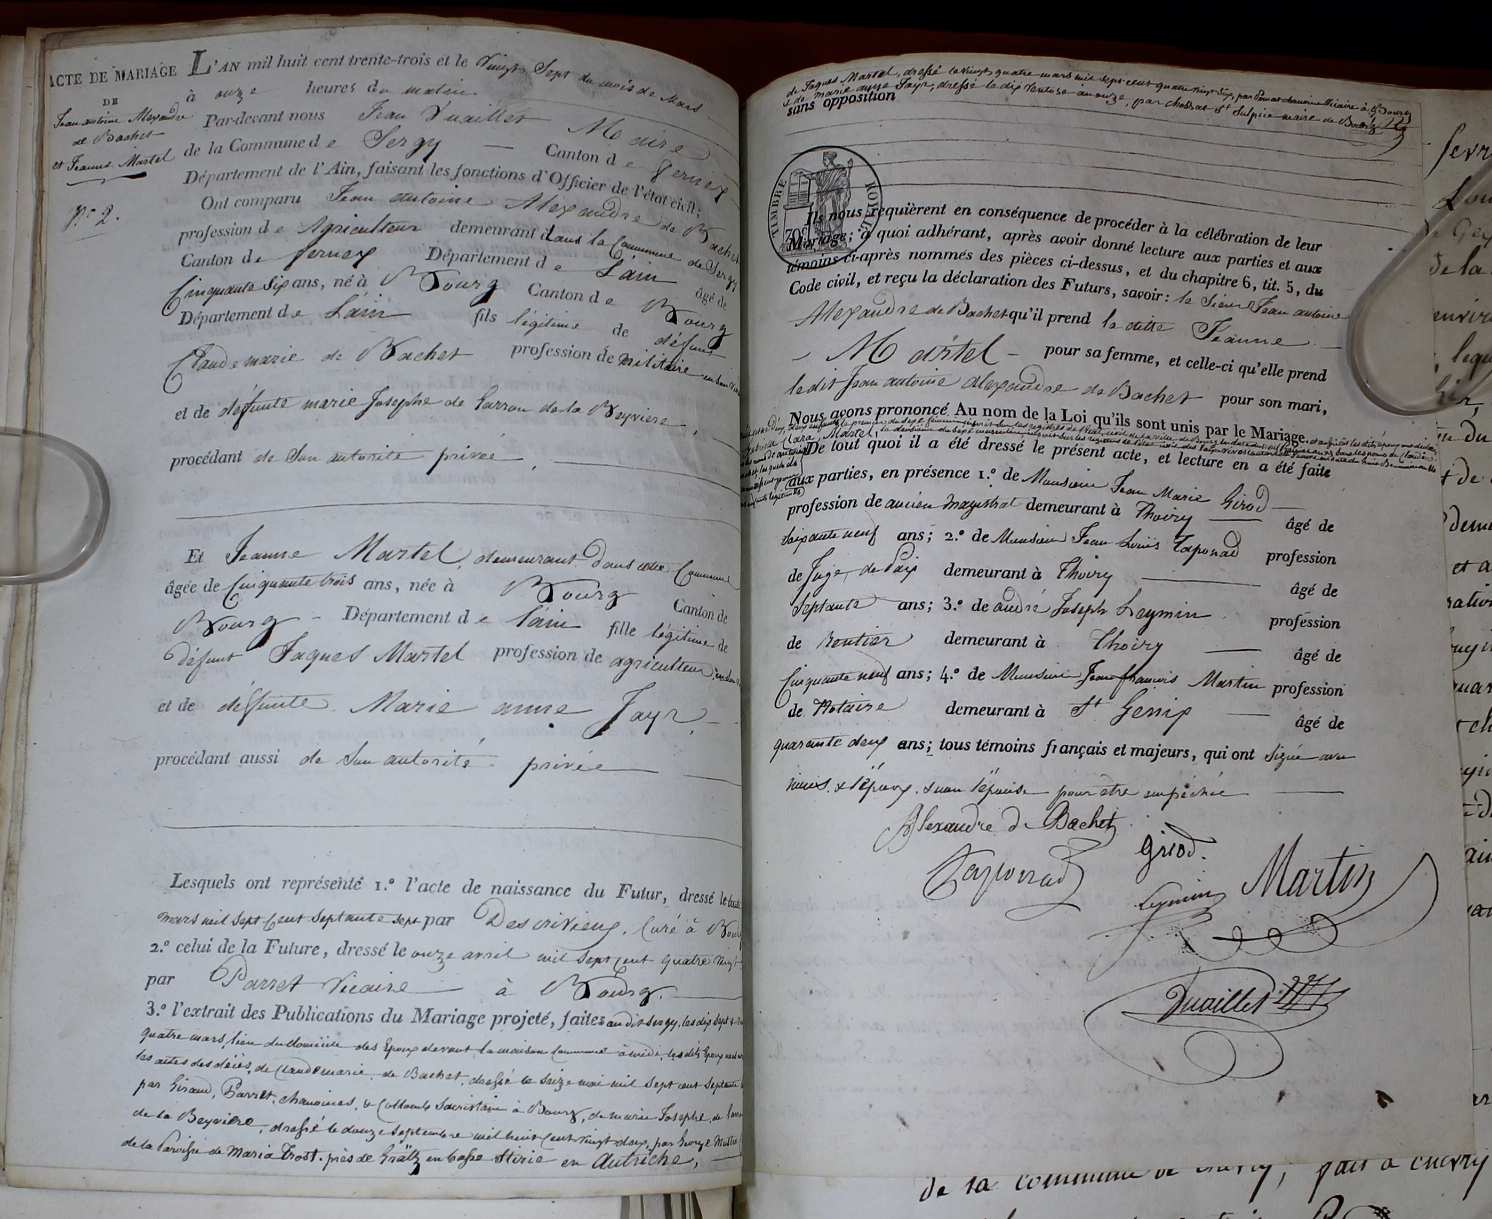 ACTE DE MARIAGE
DE
Jean antoine Alexandre
de Bachet
et Jeanne Martel
N.º 2.
L'AN mil huit cent trente-trois et le vingt Sept du mois de Mars
à onze heures du matin.
Par-devant nous Jean Duaillet Maire
de la Commune de Sergy — Canton de ferney
Département de l'Ain, faisant les fonctions d'Officier de l'état civil;
Ont comparu Jean antoine Alexandre de Bachet
profession de Agriculteur demeurant dans la Commune de Sergy
Canton de ferney Département de L'ain âgé de
Cinquante six ans, né à Bourg Canton de Bourg
Département de L'ain fils légitime de défunt
Claude marie de Bachet profession de militaire
et de défunte marie Josephe de Larrou de la Beyviere,
procédant de son autorité privée,
Et Jeanne Martel, demeurant dans cette Commune
âgée de Cinquante trois ans, née à Bourg Canton de
Bourg - Département de l'ain fille légitime de
défunt Jaques Martel profession de agriculteur
et de défunte Marie anne Jayr,
procédant aussi de son autorité privée
Lesquels ont représenté 1.º l'acte de naissance du Futur, dressé le
mars mil sept Cent septante sept par Descrivieux, Curé à Bourg
2.º celui de la Future, dressé le onze avril mil sept cent quatre vingt
par Parret Vicaire — à Bourg.
3.º l'extrait des Publications du Mariage projeté, faites au dit Sergy, les dix sept &
quatre mars, lieu du domicile des Epoux devant la maison Commune à midi, les dits Epoux
les actes des décès, de Claude marie de Bachet, dressé le seize mai mil sept cent septante
par Giraud, Parret, chanoines, & Collomb Sacristain à Bourg, de marie Josephe de
de la Beyviere, dressé le douze Septembre mil huit Cent vingt deux, par George
de la Paroisse de Maria Trost, près de Grätz en basse Stirie en Autriche,
de Jaques Martel, dressé le vingt quatre mars mil sept cent quatre vingt six, par Vicaire à Bourg
& de marie anne Jayr, dressé le dix Ventose an onze, par chossat St Sulpice maire de Bourg
sans opposition
TIMBRE ROYAL
70c
Ils nous requièrent en conséquence de procéder à la célébration de leur
Mariage; à quoi adhérant, après avoir donné lecture aux parties et aux
témoins ci-après nommés des pièces ci-dessus, et du chapitre 6, tit. 5, du
Code civil, et reçu la déclaration des Futurs, savoir: le Sieur Jean antoine
Alexandre de Bachet qu'il prend la ditte Jeanne —
- Martel - pour sa femme, et celle-ci qu'elle prend
le dit Jean antoine alexandre de Bachet pour son mari,
Nous avons prononcé Au nom de la Loi qu'ils sont unis par le Mariage.
De tout quoi il a été dressé le présent acte, et lecture en a été faite
aux parties, en présence 1.º de Monsieur Jean Marie Girod —
profession de ancien magistrat demeurant à Thoiry — âgé de
soixante neuf ans; 2.º de Monsieur Jean Louis Taponad profession
de Juge de Paix demeurant à Thoiry — âgé de
Septante ans; 3.º de andré Joseph Leymin profession
de Rentier demeurant à Thoiry — âgé de
Cinquante neuf ans; 4.º de Monsieur Jean francois Martin profession
de Notaire demeurant à St Genix — âgé de
quarante deux ans; tous témoins français et majeurs, qui ont signé avec
nous, & l'époux, & non l'épouse pour etre empéchée —
Alexandre De Bachet
Taponad
Girod.
Leymin
Martin
Duaillet
de la commune de